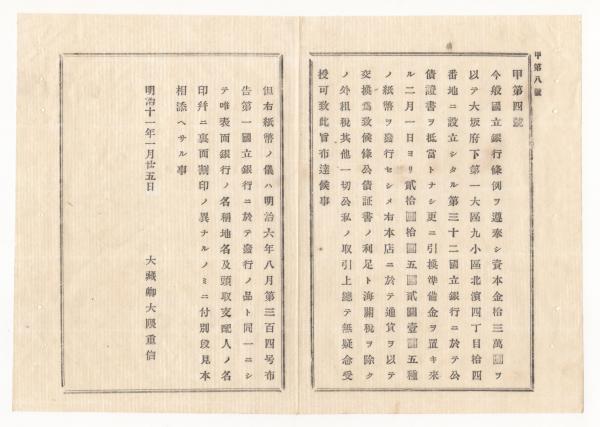 甲第八號
甲第四號
今般國立銀行條例ヲ遵奉シ資本金拾三萬圓ヲ
以テ大坂府下第一大區九小區北濱四丁目拾四
番地ニ設立シタル第三十二國立銀行ニ於テ公
債證書ヲ抵當トナシ更ニ引換準備金ヲ置キ來
ル二月一日ヨリ貳拾圓拾圓五圓貳圓壹圓五種
ノ紙幣ヲ發行セシメ右本店ニ於テ通貨ヲ以テ
交換爲致候條公債証書ノ利足ト海關税ヲ除ク
ノ外租税其他一切公私ノ取引上總テ無疑念受
授可致此旨布達候事
但右紙幣ノ儀ハ明治六年八月第三百四号布
告第一國立銀行ニ於テ發行ノ品ト同一ニシ
テ唯表面銀行ノ名稱地名及頭取支配人ノ名
印并ニ裏面割印ノ異ナルノミニ付別段見本
相添ヘサル事
明治十一年一月廿五日
大藏卿大隈重信